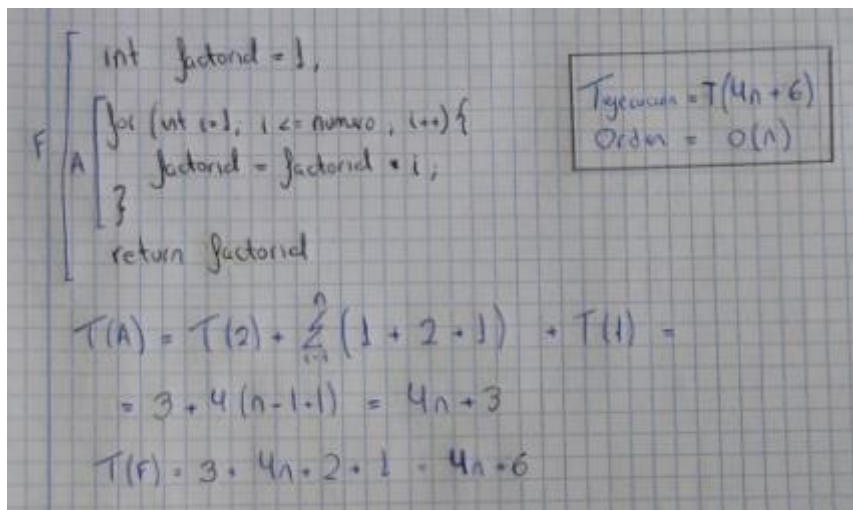 int factorial = 1;
for (int i=1; i <= numero; i++) {
factorial = factorial * i;
}
return factorial
F
A
Tejecución = T(4n+6)
Orden = O(n)
T(A) = T(2) + n∑i=1 (1 + 2 + 1) + T(1) =
= 3 + 4(n-1+1) = 4n + 3
T(F) = 3 + 4n + 2 + 1 = 4n + 6